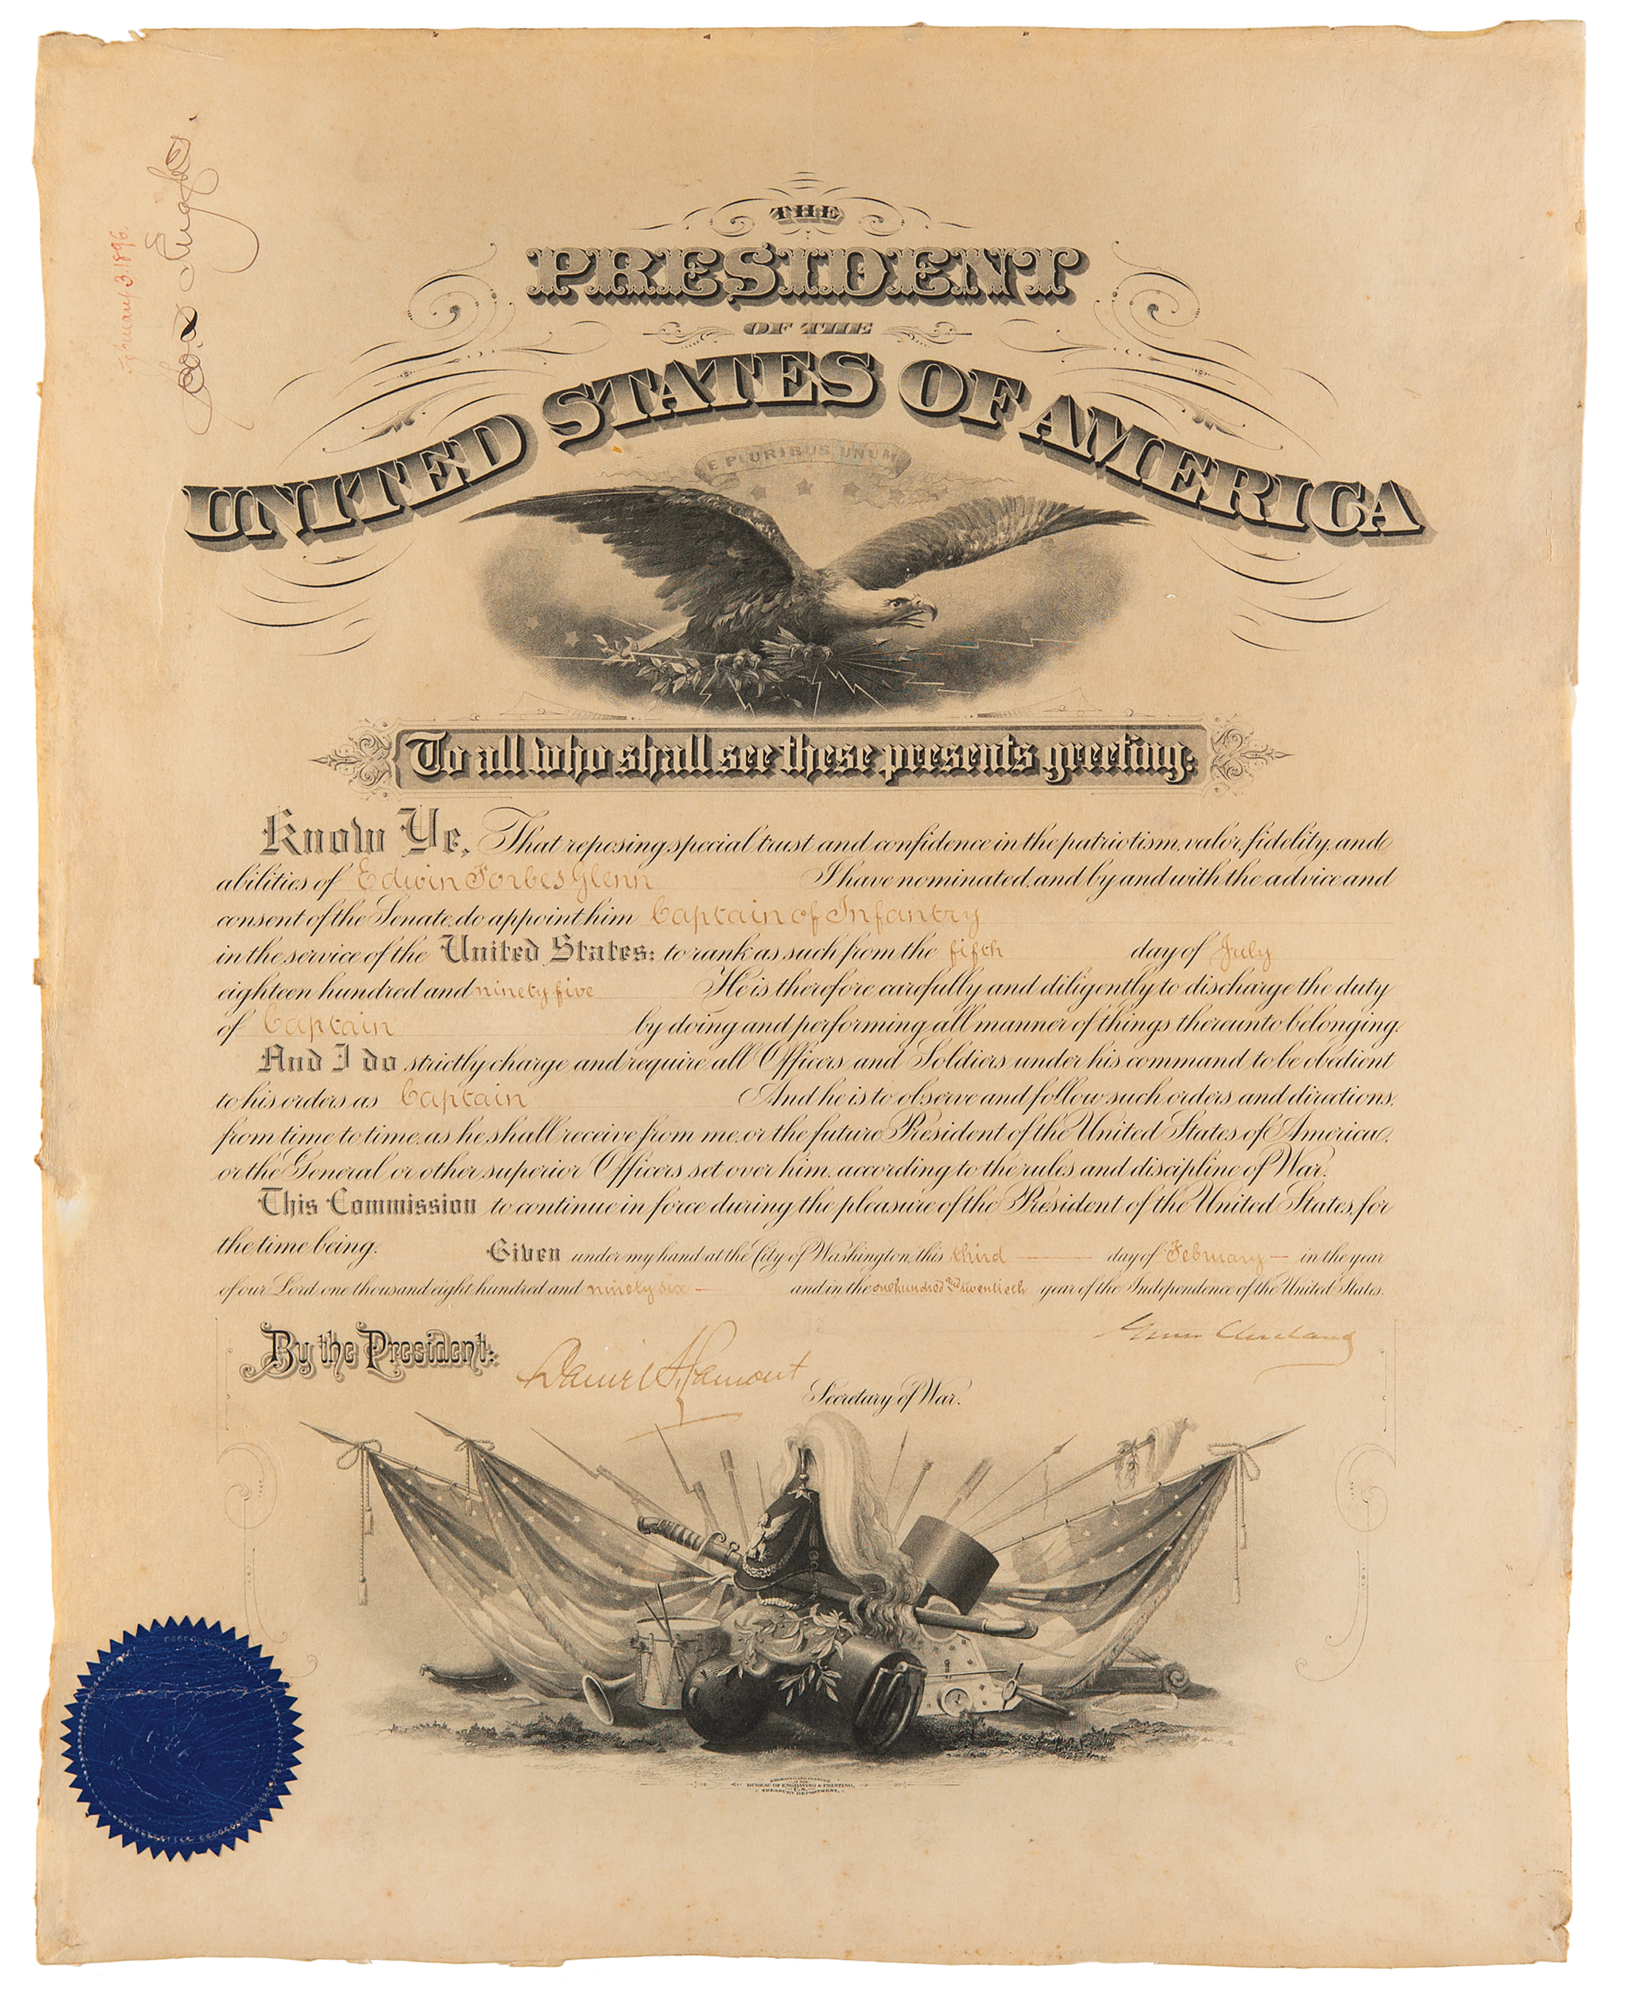 THE
PRESIDENT
OF THE
UNITED STATES OF AMERICA
E PLURIBUS UNUM
To all who shall see these presents greeting:
Know Ye, That reposing special trust and confidence in the patriotism, valor, fidelity, and
abilities of Edwin Forbes Glenn I have nominated, and by and with the advice and
consent of the Senate, do appoint him Captain of Infantry
in the service of the United States: to rank as such from the fifth day of July
eighteen hundred and ninety five He is therefore carefully and diligently to discharge the duty
of Captain by doing and performing all manner of things thereunto belonging.
And I do strictly charge and require all Officers and Soldiers under his command to be obedient
to his orders as Captain And he is to observe and follow such orders, and directions,
from time to time, as he shall receive from me, or the future President of the United States of America,
or the General or other superior Officers set over him, according to the rules and discipline of War.
This Commission to continue in force during the pleasure of the President of the United States, for
the time being. Given under my hand at the City of Washington, this third day of February in the year
of our Lord one thousand eight hundred and ninety six and in the one hundred and twentieth year of the Independence of the United States.
Grover Cleveland
By the President:
Daniel S. Lamont
Secretary of War.
ENGRAVED AND PRINTED
AT THE
BUREAU OF ENGRAVING & PRINTING,
U.S.
TREASURY DEPARTMENT.
February 3. 1896.